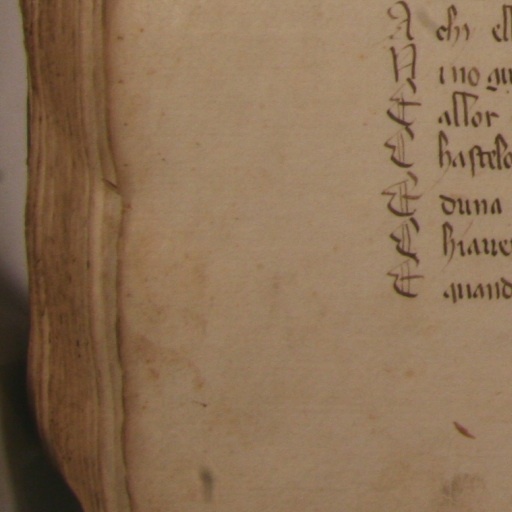 A chi ell
N ino qu
E allor
E hastelo
E duna
E hiaue
E quand